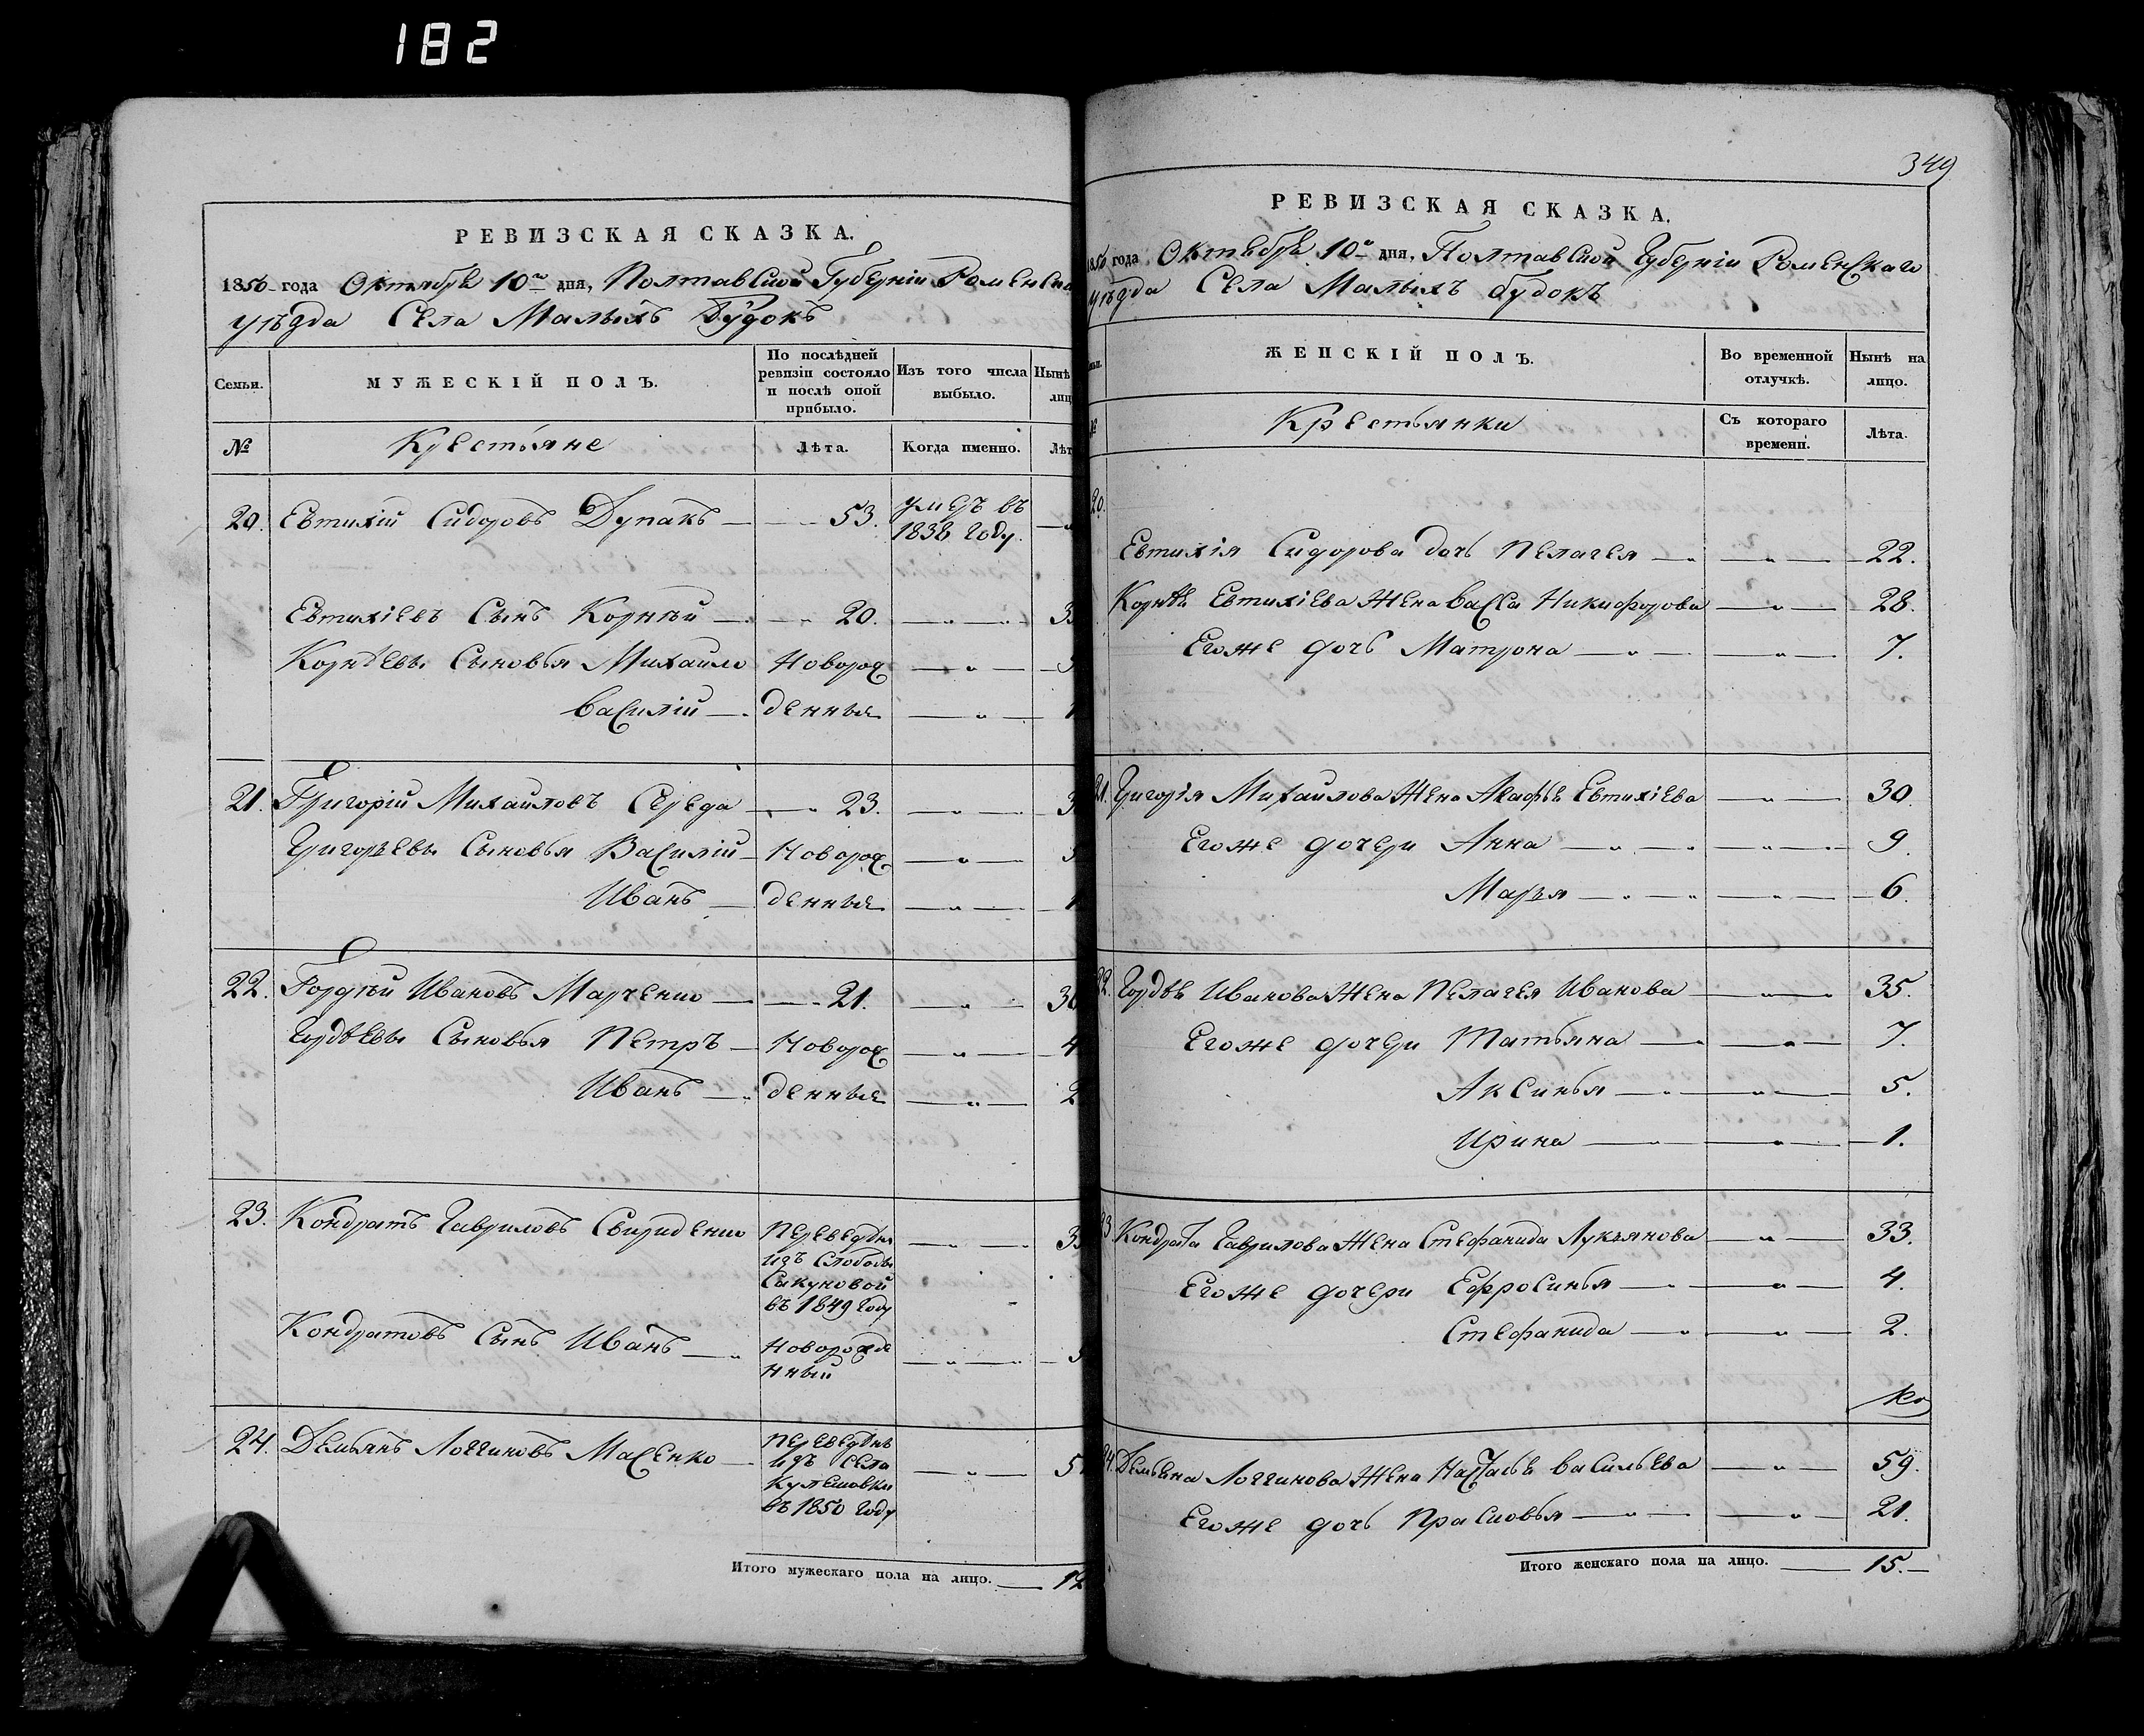 182
РЕВИЗСКАЯ СКАЗКА.
1850 года Октября 10го дня, Полтавской Губерніи Роменска
уѣзда Села Малыхъ Будокъ
Семьи.
МУЖЕСКІЙ ПОЛЪ.
По послѣдней ревизіи состояло и послѣ оной прибыло.
Изъ того числа выбыло.
Нынѣ
лиц
№
Крестьяне
Лѣта.
Когда именно.
Лѣт
20. Евтихій Сидоровъ Дупакъ — 53. умеръ въ
1838 году.
Евтихіевъ Сынъ Корнѣй — 20. 3
Корнѣевы Сыновья Михайло Новорож
Василій — денные 1
21. Григорій Михайловъ Середа — 23. 3
Григорьевы Сыновья Василій — Новорож
Иванъ — денные 1
22. Гордѣй Ивановъ Марченко — 21. 36
Гордѣевы Сыновья Петръ — Новорож 4
Иванъ — денные 2
23. Кондратъ Гавриловъ Свириденко Переведѣнъ
изъ Слободы
Сакуновой
въ 1849 году
Кондратовъ Сынъ Иванъ — Новорожде
нный
24. Демьянъ Логгиновъ Масенко — Переведѣнъ
изъ села
Кулешовки
въ 1850 году
5
Итого мужескаго пола на лицо. — 12
349
РЕВИЗСКАЯ СКАЗКА.
1850 года Октября 10го дня, Полтавской Губерніи Роменскаго
уѣзда Села Малыхъ Будокъ
ЖЕНСКІЙ ПОЛЪ.
Во временной отлучкѣ.
Нынѣ на лицо.
№
Крестьянки
Съ котораго времени.
Лѣта.
20.
Евтихія Сидорова дочь Пелагея — 22.
Корнѣя Евтихіева Жена Васса Никифорова — 28.
Его же дочь Матрона — 7.
21. Григорія Михайлова Жена Агафья Евтихіева — 30.
Его же дочери Анна — 9.
Марья — 6.
22. Гордѣя Иванова Жена Пелагея Иванова — 35.
Его же дочери Татьяна — 7.
Аксинья — 5.
Ирина — 1.
23 Кондрата Гаврилова Жена Стефанида Лукьянова — 33.
Его же дочери Ефросинья — 4.
Стефанида — 2.
24. Демьяна Логгинова Жена Настасья Васильева — 59.
Его же дочь Прасковья — 21.
Итого женскаго пола на лицо. — 15.